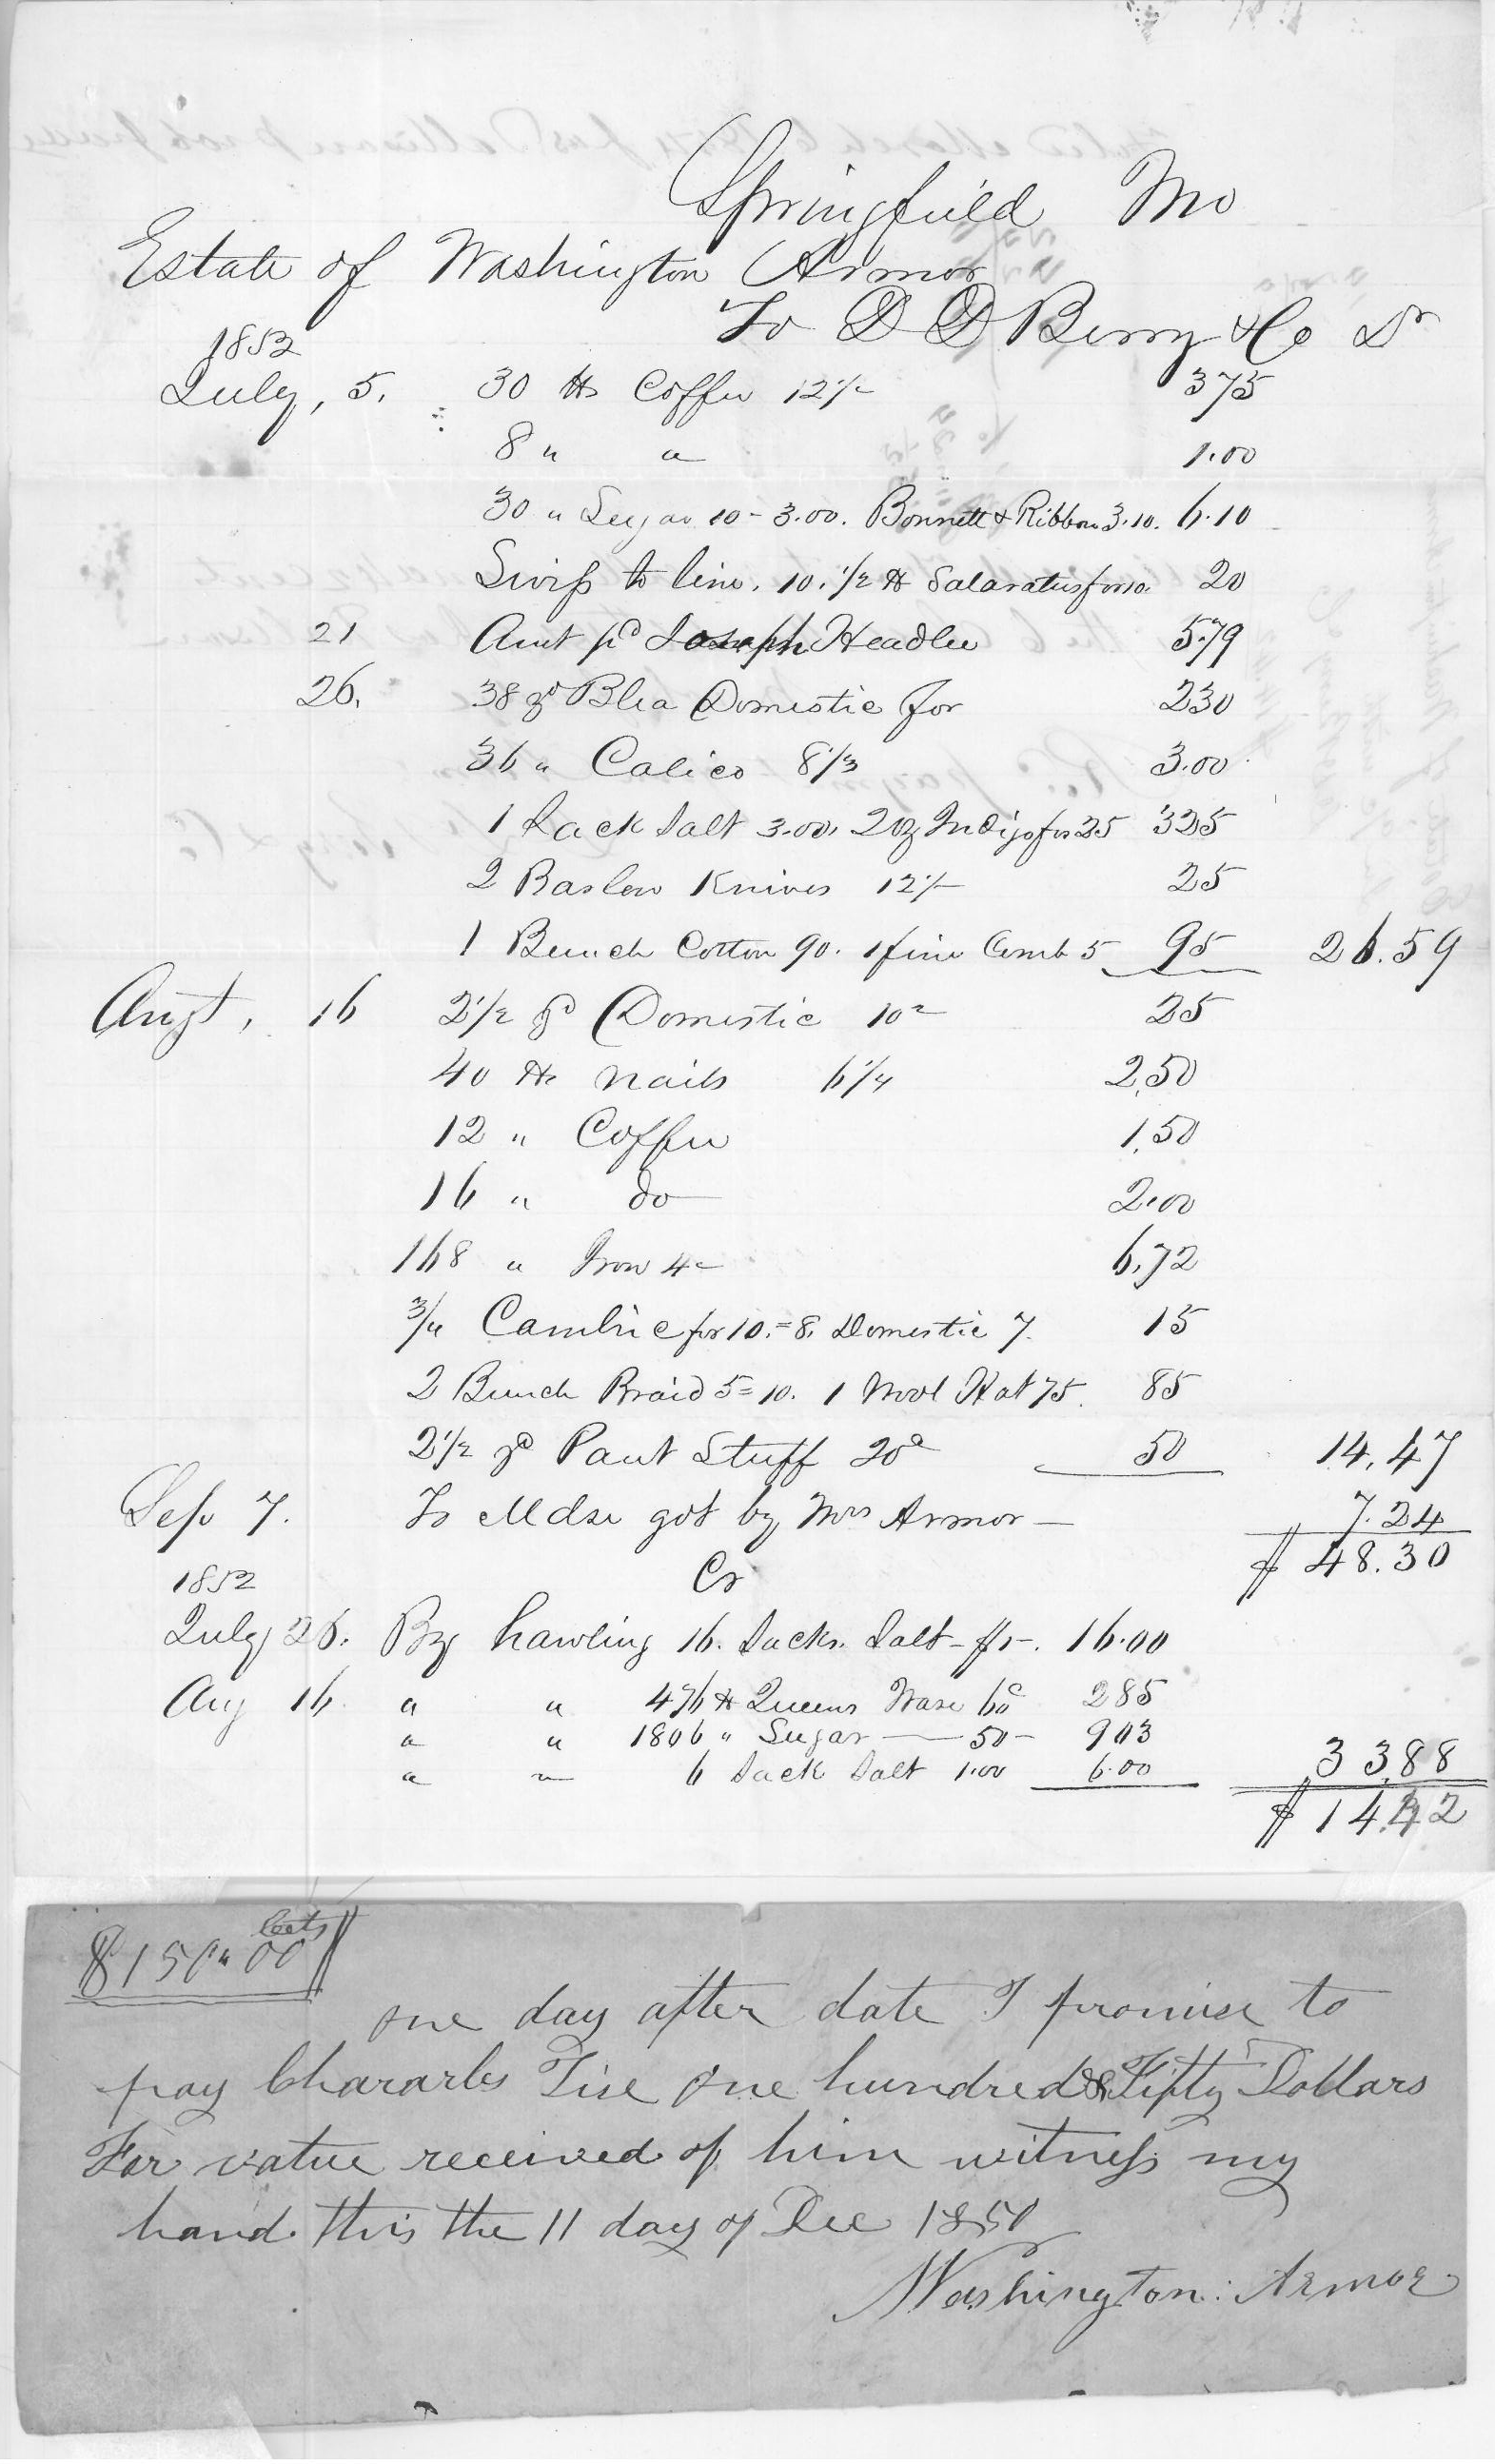 Springfield Mo
Estate of Washington Armor
To D D Berry & Co Dr
1852
July, 5. 30 lbs Coffee 12½ 375
8 " " 1.00
30 " Sugar 10 - 3.00. Bonnett & Ribbon 3.10. 6.10
Swiss to line. 10. ½ lb Salaratus for 10. 20
21 Amt pd Joseph Headlee 5.79
26. 38 yd Blea Domestic for 230
36 " Calico 8⅓ 3.00
1 Sack Salt 3.00, 2 oz Indigo for 25 325
2 Barlow Knives 12½ 25
1 Bunch Cotton 90. 1 fine Comb 5 95 26.59
Augt, 16 2½ yd Domestic 10c 25
40 lbs nails 6¼ 2,50
12 " Coffee 1,50
16 " do 2.00
168 " Iron 4c 6,72
¾ Cambric for 10. = 8. Domestic 7. 15
2 Bunch Braid 5 = 10. 1 Wool Hat 75. 85
2½ yd Pant Stuff 20c 50 14,47
Sep 7. To Mdse got by Mrs Armor — 7.24
$ 48.30
1852 Cr
July 26. By hawling 16. Sacks. Salt - $1-. 16.00
Aug 16 " " 476 lb Queens Ware 60c 285
" " 1806 " Sugar — 50 - 903
" " 6 Sack Salt 1.00 6.00 33.88
$ 14.42
$150"00 cts
one day after date I promise to
pay Chararles Tise one hundred & Fifty Dollars
For value received of him witness my
hand this the 11 day of Dec 1850
Washington: Armor